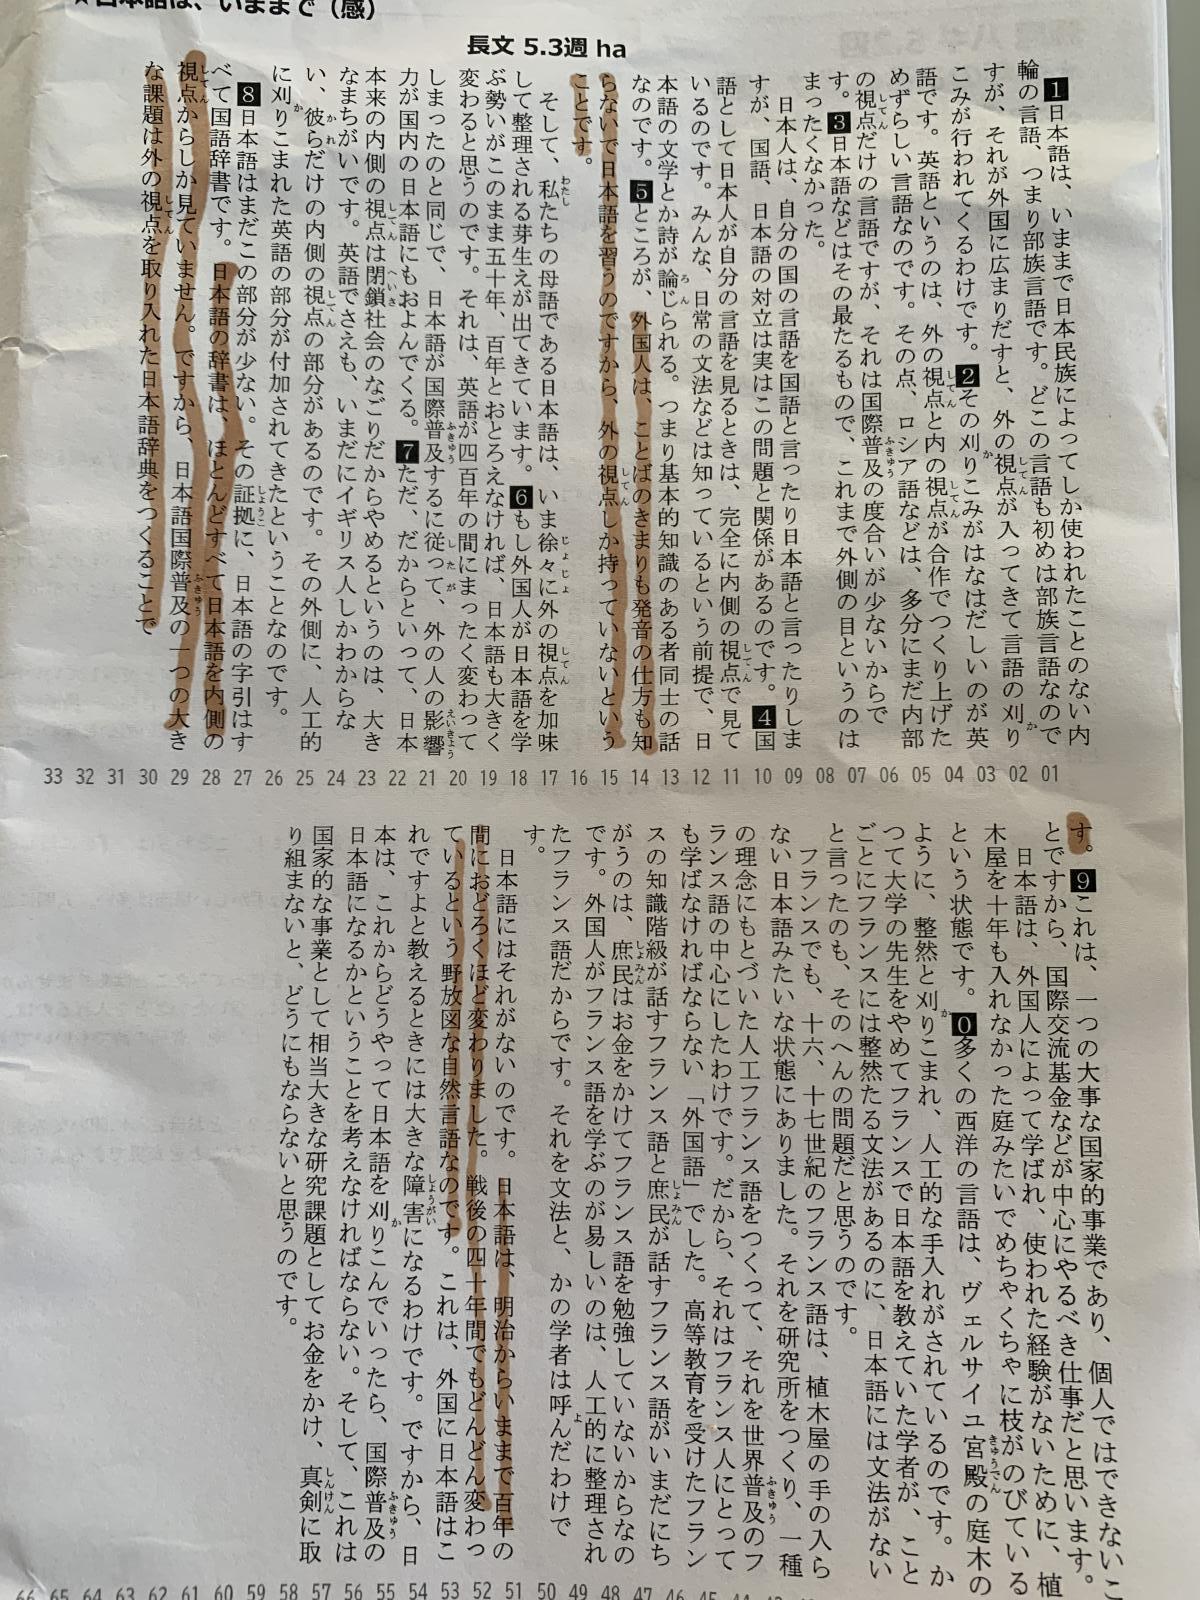 ★日本語は、いままで（感）
長文 5.3週 ha
1日本語は、いままで日本民族によってしか使われたことのない内
輪の言語、つまり部族言語です。どこの言語も初めは部族言語なので
すが、それが外国に広まりだすと、外の視点が入ってきて言語の刈り
こみが行われてくるわけです。2その刈りこみがはなはだしいのが英
語です。英語というのは、外の視点と内の視点が合作でつくり上げた
めずらしい言語なのです。その点、ロシア語などは、多分にまだ内部
の視点だけの言語ですが、それは国際普及の度合いが少ないからで
す。3日本語などはその最たるもので、これまで外側の目というのは
まったくなかった。
日本人は、自分の国の言語を国語と言ったり日本語と言ったりしま
すが、国語、日本語の対立は実はこの問題と関係があるのです。4国
語として日本人が自分の言語を見るときは、完全に内側の視点で見て
いるのです。みんな、日常の文法などは知っているという前提で、日
本語の文学とか詩が論じられる。つまり基本的知識のある者同士の話
なのです。5ところが、外国人は、ことばのきまりも発音の仕方も知
らないで日本語を習うのですから、外の視点しか持っていないという
ことです。
そして、私たちの母語である日本語は、いま徐々に外の視点を加味
して整理される芽生えが出てきています。6もし外国人が日本語を学
ぶ勢いがこのまま五十年、百年とおとろえなければ、日本語も大きく
変わると思うのです。それは、英語が四百年の間にまったく変わって
しまったのと同じで、日本語が国際普及するに従って、外の人の影響
力が国内の日本語にもおよんでくる。7ただ、だからといって、日本
本来の内側の視点は閉鎖社会のなごりだからやめるというのは、大き
なまちがいです。英語でさえも、いまだにイギリス人しかわからな
い、彼らだけの内側の視点の部分があるのです。その外側に、人工的
に刈りこまれた英語の部分が付加されてきたということなのです。
8日本語はまだこの部分が少ない。その証拠に、日本語の字引はす
べて国語辞書です。日本語の辞書は、ほとんどすべて日本語を内側の
視点からしか見ていません。ですから、日本語国際普及の一つの大き
な課題は外の視点を取り入れた日本語辞典をつくることで
33 32 31 30 29 28 27 26 25 24 23 22 21 20 19 18 17 16 15 14 13 12 11 10 09 08 07 06 05 04 03 02 01
す。9これは、一つの大事な国家的事業であり、個人ではできないこ
とですから、国際交流基金などが中心にやるべき仕事だと思います。
日本語は、外国人によって学ばれ、使われた経験がないために、植
木屋を十年も入れなかった庭みたいでめちゃくちゃに枝がのびている
という状態です。0多くの西洋の言語は、ヴェルサイユ宮殿の庭木の
ように、整然と刈りこまれ、人工的な手入れがされているのです。か
つて大学の先生をやめてフランスで日本語を教えていた学者が、こと
ごとにフランスには整然たる文法があるのに、日本語には文法がない
と言ったのも、そのへんの問題だと思うのです。
フランスでも、十六、十七世紀のフランス語は、植木屋の手の入ら
ない日本語みたいな状態にありました。それを研究所をつくり、一種
の理念にもとづいた人工フランス語をつくって、それを世界普及のフ
ランス語の中心にしたわけです。だから、それはフランス人にとって
も学ばなければならない「外国語」でした。高等教育を受けたフラン
スの知識階級が話すフランス語と庶民が話すフランス語がいまだにち
がうのは、庶民はお金をかけてフランス語を勉強していないからなの
です。外国人がフランス語を学ぶのが易しいのは、人工的に整理され
たフランス語だからです。それを文法と、かの学者は呼んだわけで
す。
日本語にはそれがないのです。日本語は、明治からいままで百年の
間におどろくほど変わりました。戦後の四十年間でもどんどん変わっ
ているという野放図な自然言語なのです。これは、外国に日本語はこ
れですよと教えるときには大きな障害になるわけです。ですから、日
本は、これからどうやって日本語を刈りこんでいったら、国際普及の
日本語になるかということを考えなければならない。そして、これは
国家的な事業として相当大きな研究課題としてお金をかけ、真剣に取
り組まないと、どうにもならないと思うのです。
66 65 64 63 62 61 60 59 58 57 56 55 54 53 52 51 50 49 48 47 46 45 44 43 42